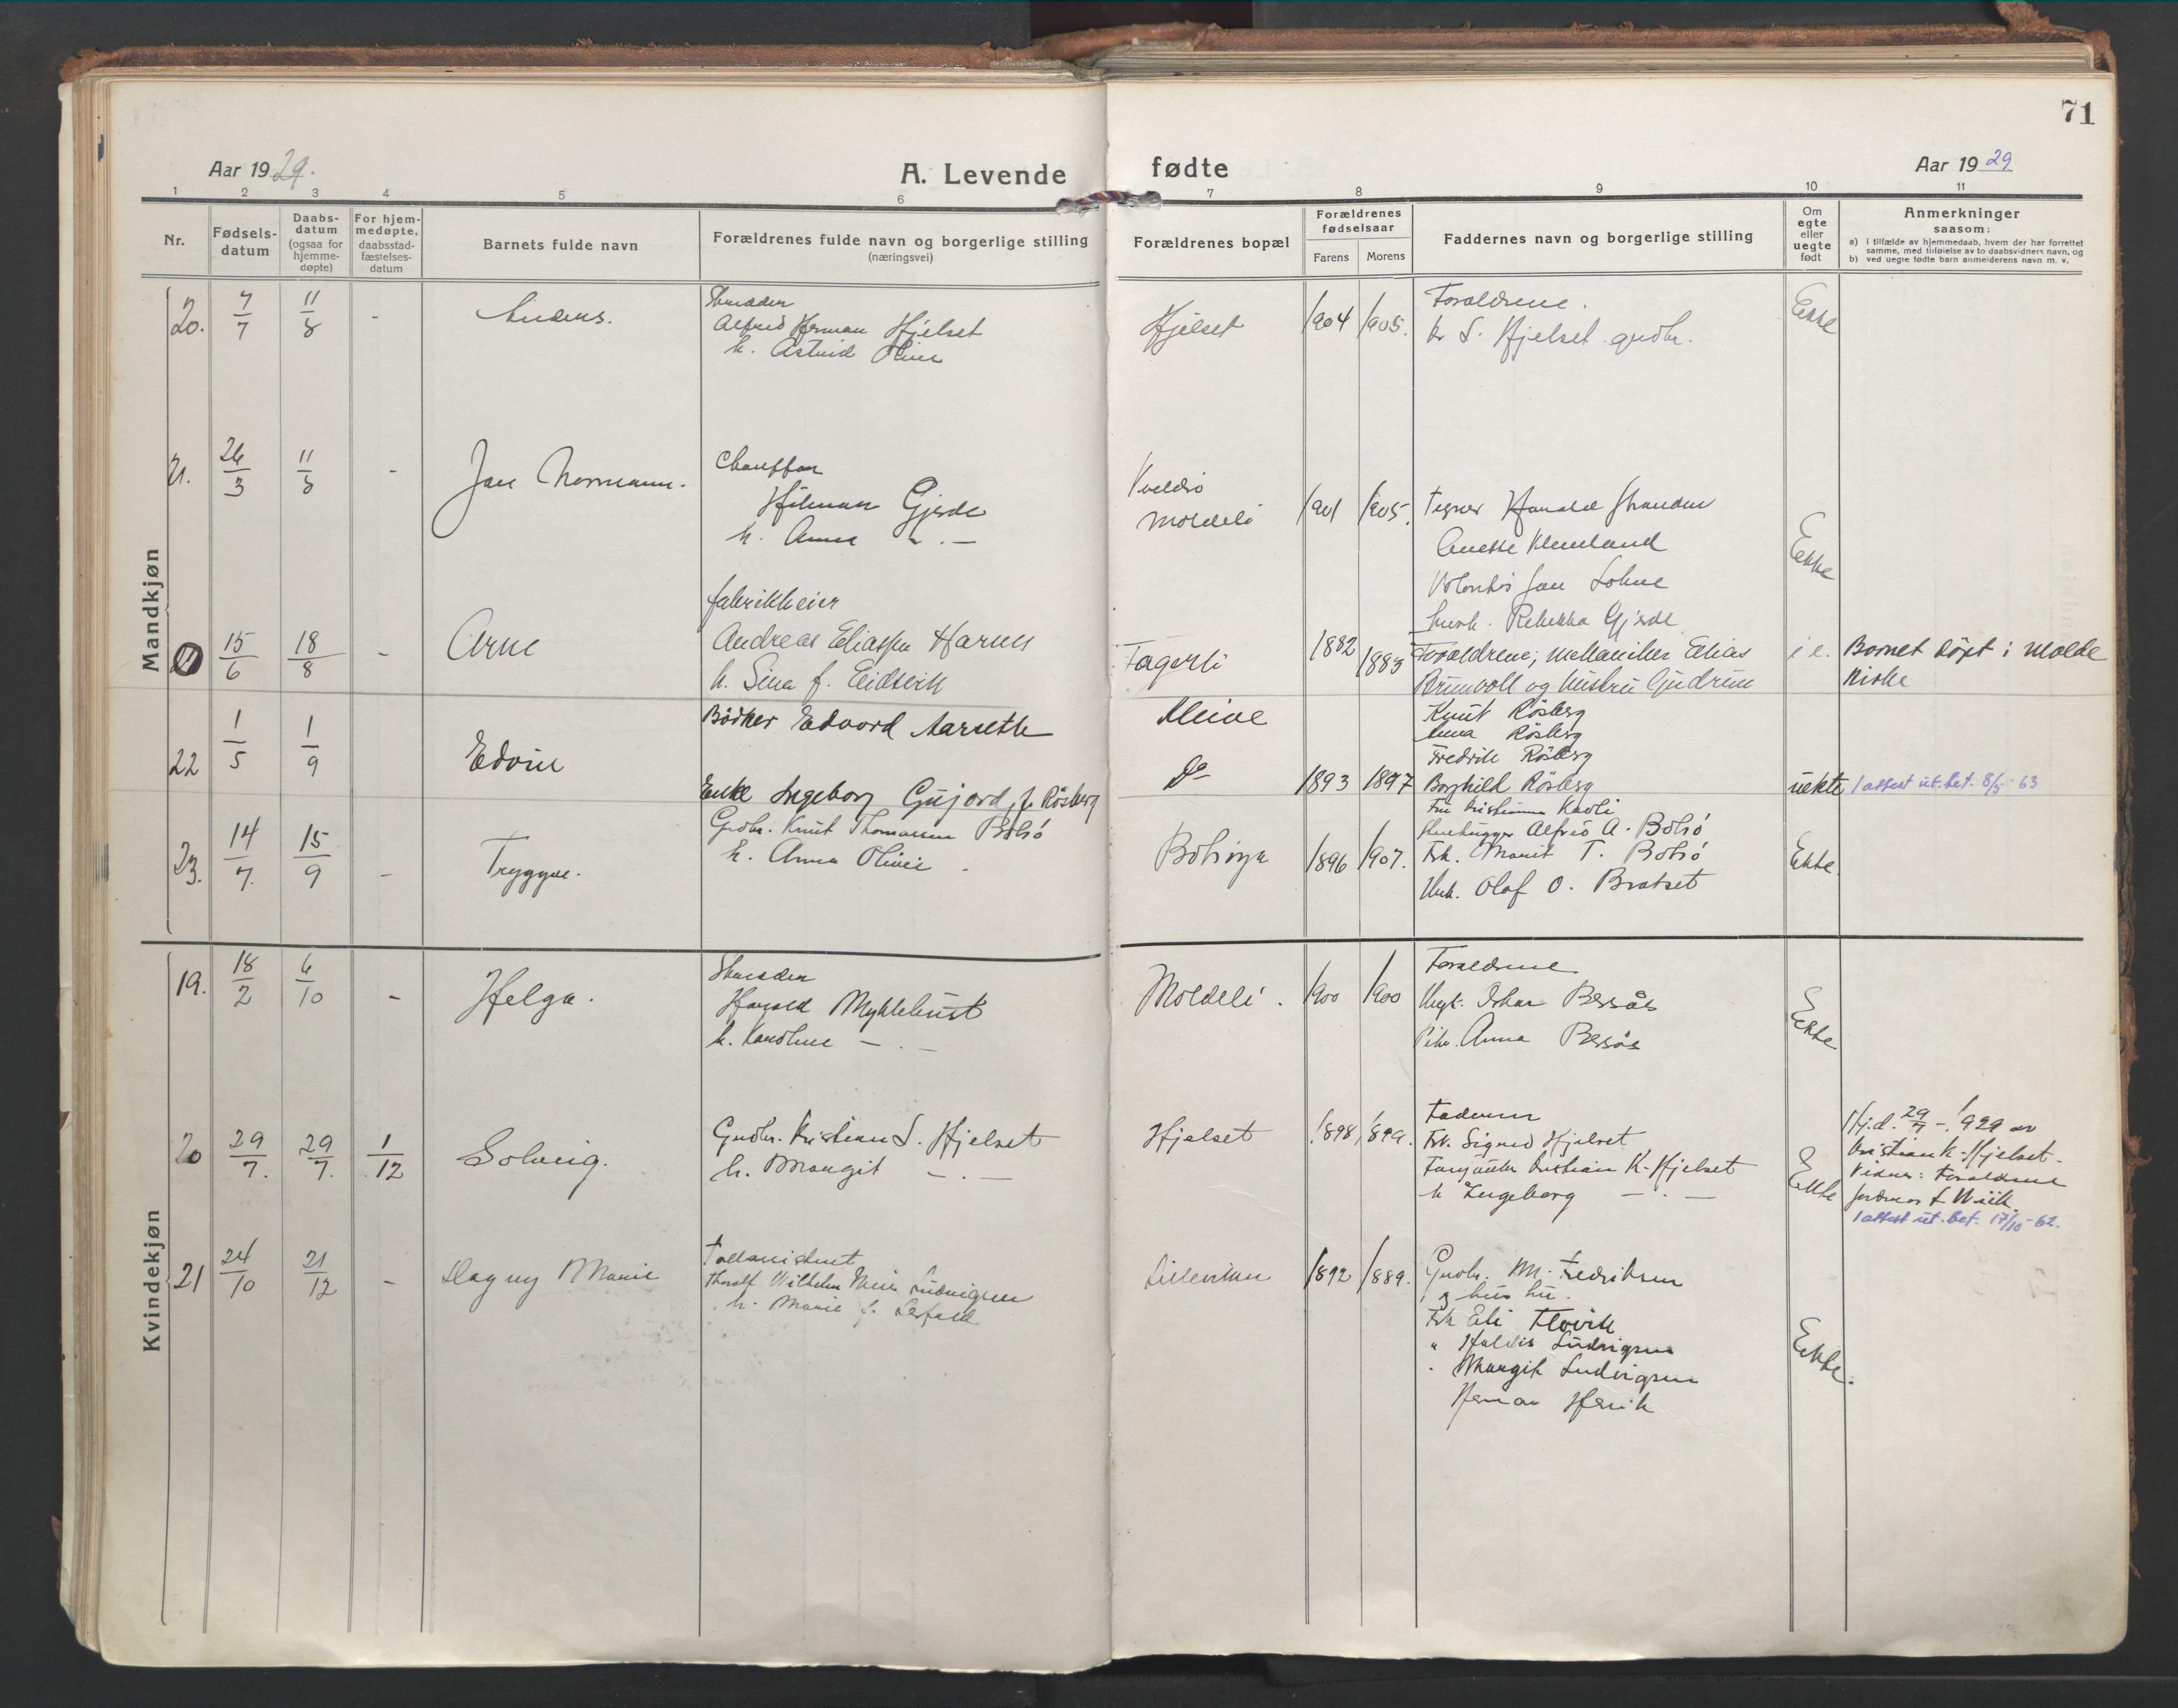 71
Aar 1929.
A. Levende
fødte
Aar 1929
1 2 3 4 5 6 7 8 9 10 11
Nr.
Fødsels-
datum
Daabs-
datum
(ogsaa for
hjemme-
døpte)
For hjem-
medøpte,
daabsstad-
fæstelses-
datum
Barnets fulde navn
Forældrenes fulde navn og borgerlige stilling
(næringsvei)
Forældrenes bopæl
Forældrenes
fødselsaar
Farens Morens
Faddernes navn og borgerlige stilling
Om
egte
eller
uegte
født
Anmerkninger
saasom:
a) i tilfælde av hjemmedaab, hvem der har forrettet
samme, med tilføielse av to daabsvidners navn, og
b) ved uegte fødte barn anmelderens navn m. v.
Mandkjøn
20. 7/7 11/8 - Anders.
Skrædder
Alfred Herman Hjelset
h. Astrid Oline
Hjelset 1904 1905.
Forældrene.
K. S. Hjelset grdbr.
Ekte
21. 26/3 11/8 - Jan Normann.
Chauffør
Hilmar Gjerde
h. Anna - . -
Moldeli 1901 1905.
Anette Kleveland
Jan Lohne
Rebekka Gjerde
Ekte
15/6 18/8 - Arne
fabrikkeier
Andreas Eliassen Harnes
h. Sina f. Eidsvik
Fagerli 1882 1883
Forældrene, mekaniker Elias
Brunvoll og hustru Gudrun
Barnet døpt i Molde
Kirke
22 1/5 1/9 Edvin
Bødker Edvard Aarseth
Enke Ingeborg Gujord, f. Røsberg
Kleive
Do 1893 1897
Knut Røsberg
Anna Røsberg
Fredrik Røsberg
Borghild Røsberg
uekte 1 attest ut. bet. 8/5-63
23. 14/7. 15/9 - Tryggve.
Grdbr. Knut Thomassen Bolsø
h. Anna Olivie
Bolsøya 1896 1907.
Fru Kristianna Kavli
Alfred A. Bolsø
Frk. Marit T. Bolsø
Ungk. Olaf O. Bratset
Ekte
Kvindekjøn
19. 18/2 6/10 - Helga.
Skrædder
Harald Myklebust
h. Karoline - . -
Moldeli. 1900 1900
Forældrene
Ungk. Oskar Bersås
Pike Anna Bersås
Ekte
20 29/7. 29/7. 1/12 Solveig.
Grdbr. Kristian S. Hjelset
h. Margit - . -
Hjelset 1898, 1899.
Faderen
Frk. Sigrid Hjelset
Kristian K. Hjelset
h Ingeborg - . -
Ekte
Hj.d. 29/7-1929 av
Kristian K. Hjelset.
Vidner: Forældrene
1 attest ut. bet. 17/10-62.
21 24/10 21/12 - Dagny Marie
Thorolf Wilhelm Ludvigsen
h. Marie f.
1892 1889.
Grdbr. M. Fredriksen
og hustru.
Frk Eli Flovik
" Haldis Ludvigsen
" Margit Ludvigsen
Herman
Ekte.